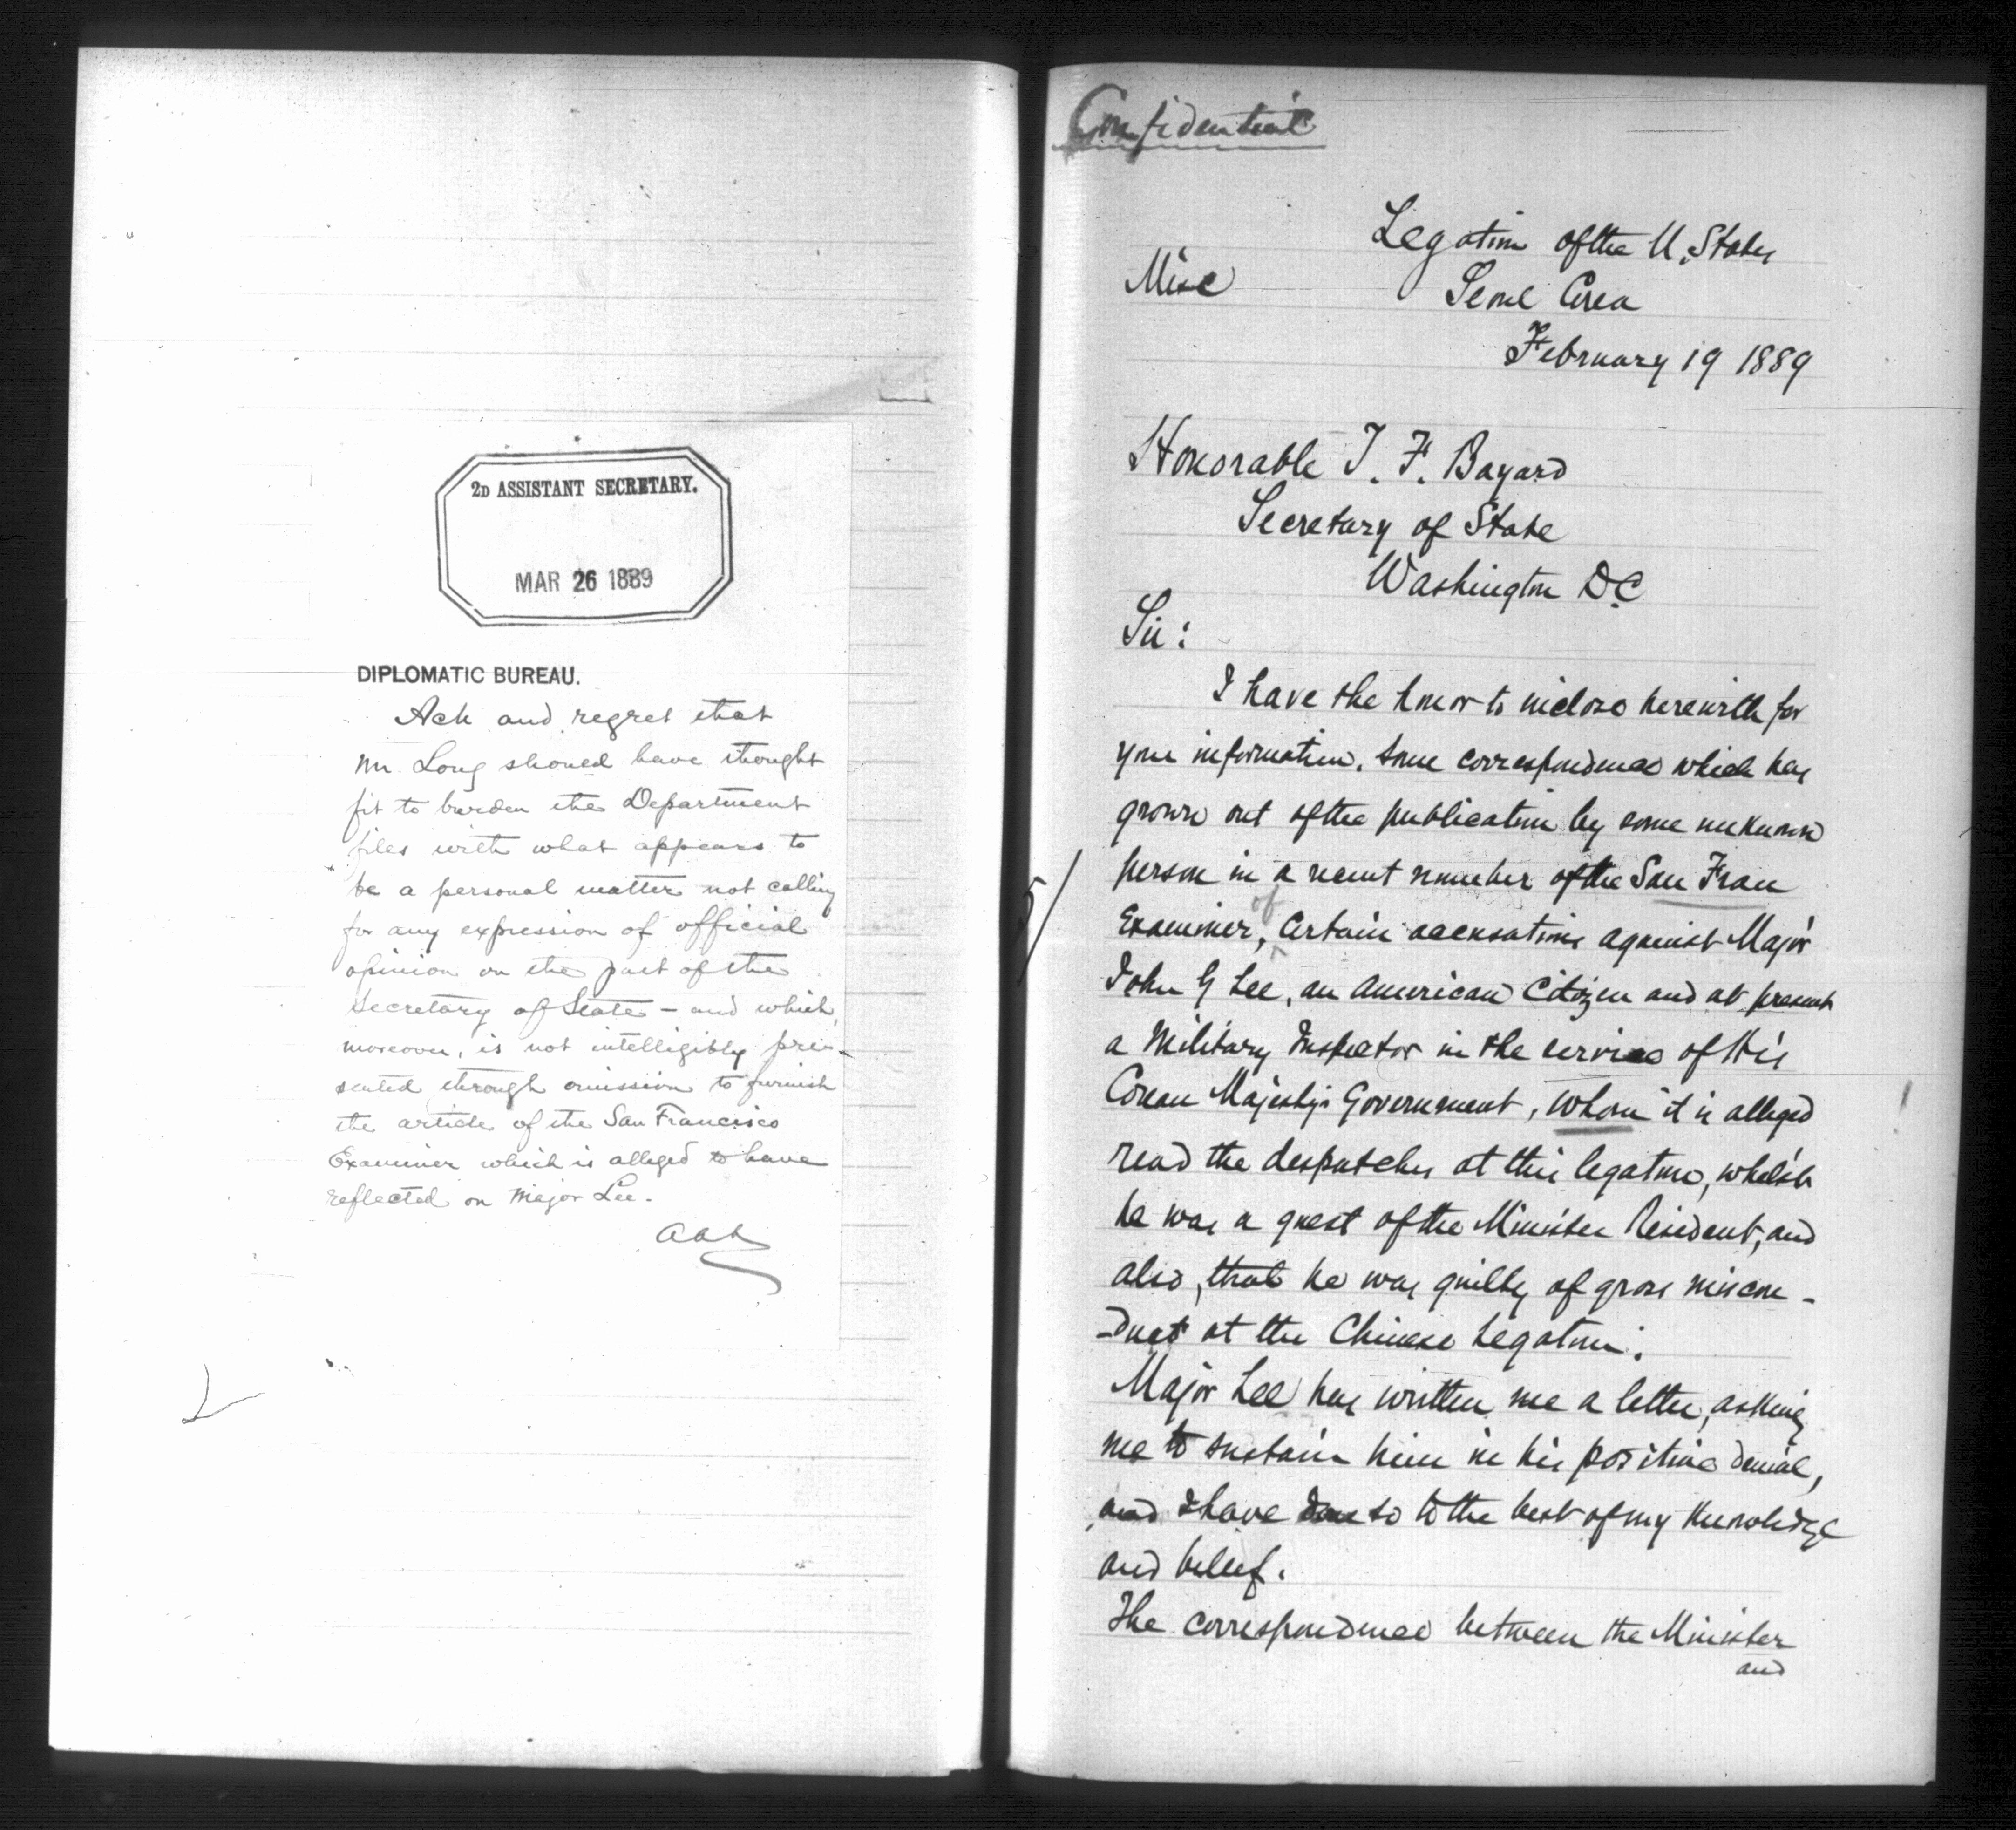 2D ASSISTANT SECRETARY.
MAR 26 1889
DIPLOMATIC BUREAU.
Ack and regret that
Mr. Long should have thought
fit to burden the Department
files with what appears to
be a personal matter not calling
for any expression of official
opinion on the part of the
Secretary of State – and which,
moreover, is not intelligibly pre-
sented through omission to furnish
the article of the San Francisco
Examiner which is alleged to have
reflected on Major Lee.
Confidential
Legation of the U. States
Misc
Seoul Corea
February 19 1889
Honorable T. F. Bayard
Secretary of State
Washington D.C
Sir:
I have the honor to inclose herewith for
your information, some correspondence which has
grown out of the publication by some unknown
person in a recent number of the San Fran
Examiner, of certain accusations against Major
John G Lee, an American Citizen and at present
a Military Inspector in the service of His
Corean Majesty's Government, whom it is alleged
read the despatches at this legation, whilst
he was a guest of the Minister Resident, and
also, that he was guilty of gross miscon-
-duct at the Chinese Legation.
Major Lee has written me a letter, asking
me to sustain him in his positive denial,
and I have done so to the best of my knowledge
and belief.
The correspondence between the Minister
and